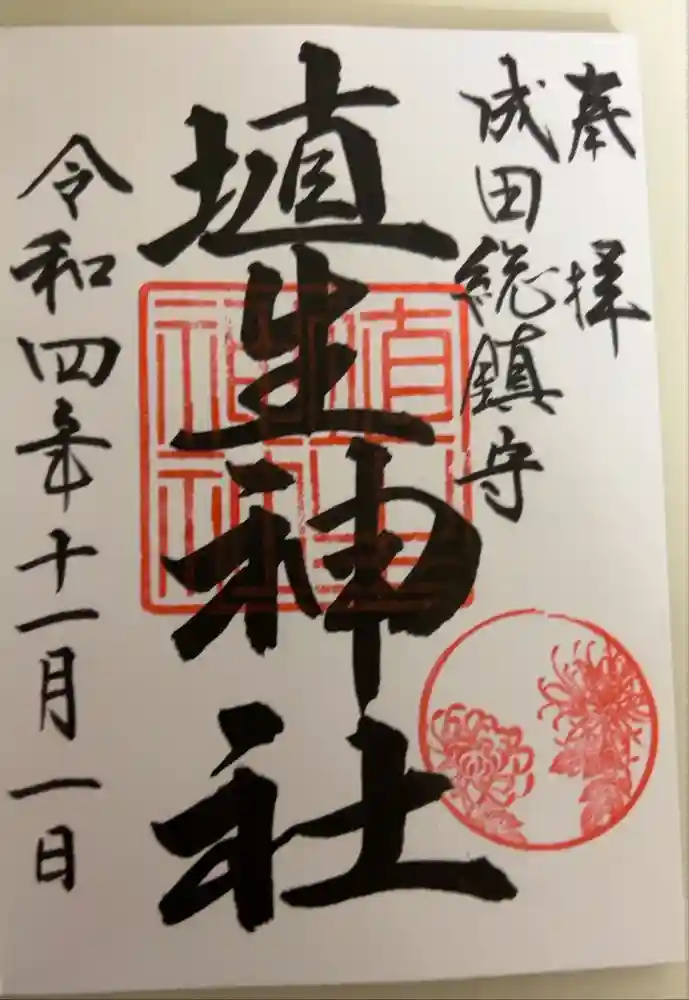 奉拝
成田総鎮守
埴生神社
埴生神社
令和四年十一月一日